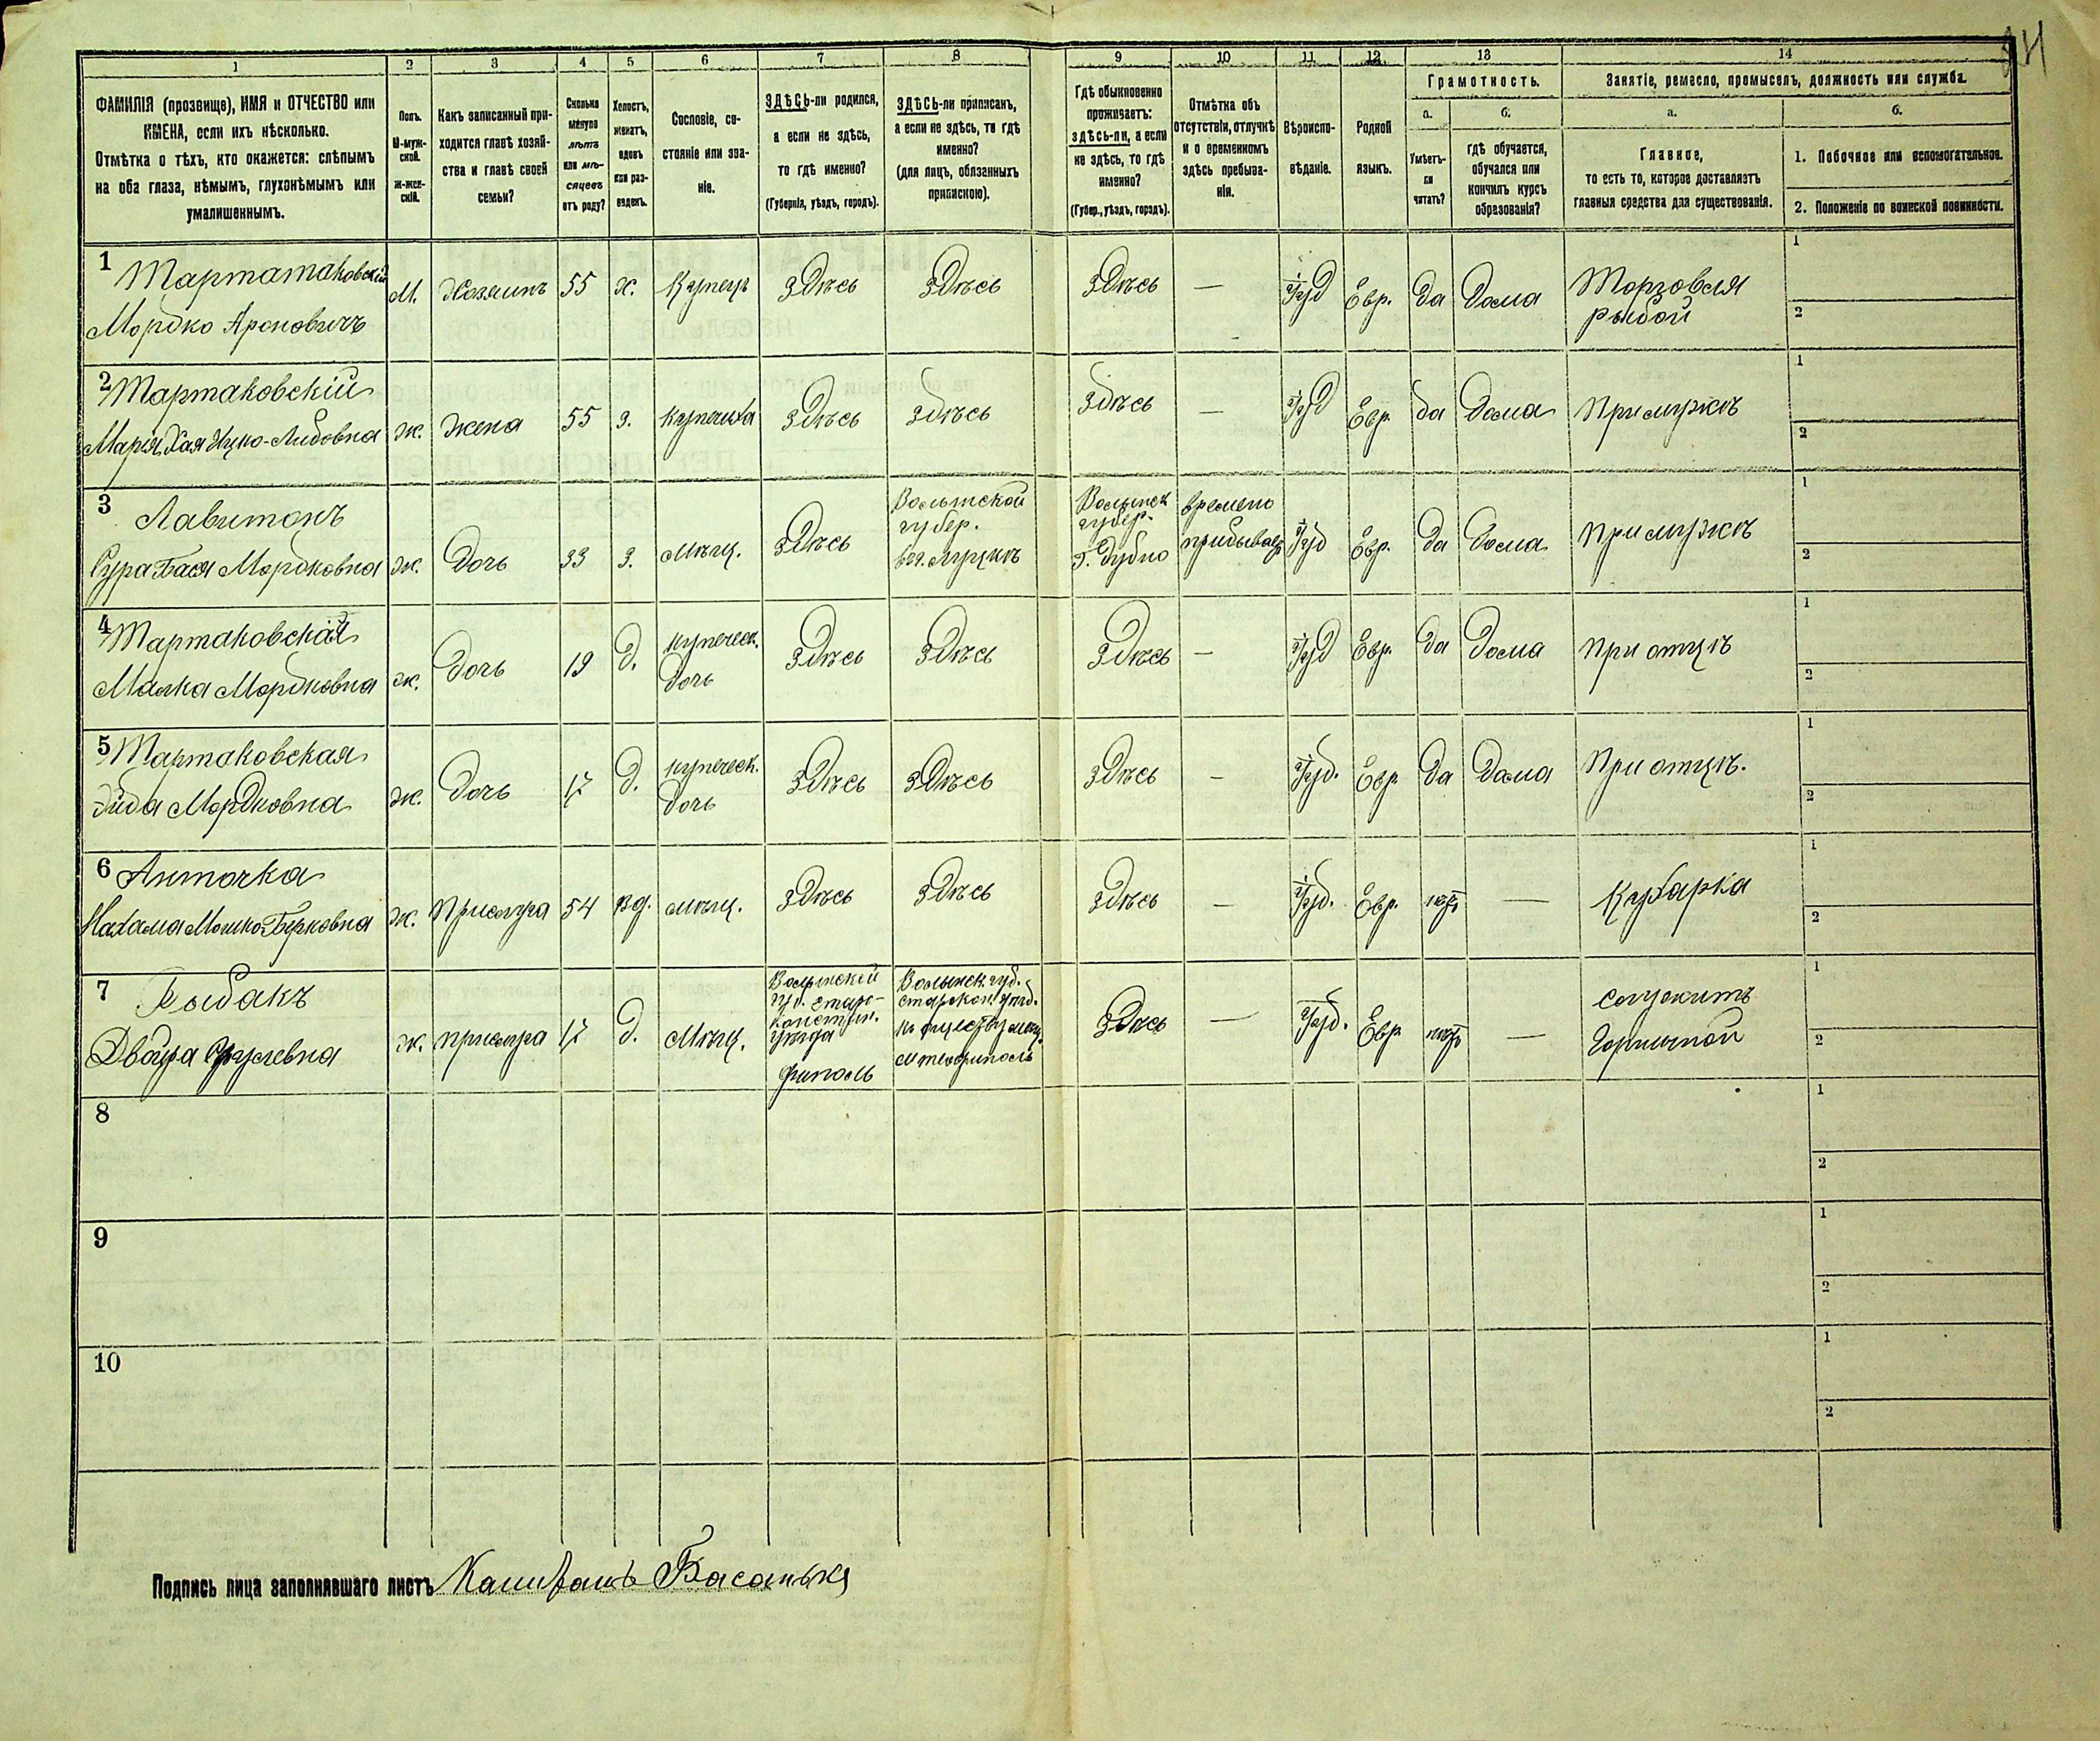 1 2 3 4 5 6 7 8 9 10 11 12 13 14
ФАМИЛІЯ (прозвище), ИМЯ и ОТЧЕСТВО или
ИМЕНА, если ихъ нѣсколько.
Отмѣтка о тѣхъ, кто окажется: слѣпымъ
на оба глаза, нѣмымъ, глухонѣмымъ или
умалишеннымъ.
Полъ.
М-муж-
ской.
Ж-жен-
скій.
Какъ записанный при-
ходится главѣ хозяй-
ства и главѣ своей
семьи?
Сколько
минуло
лѣтъ
или мѣ-
сяцевъ
отъ роду?
Холостъ,
женатъ,
вдовъ
или раз-
веденъ.
Сословіе, со-
стояніе или зва-
ніе.
ЗДѢСЬ-ли родился,
а если не здѣсь,
то гдѣ именно?
(Губернія, уѣздъ, городъ).
ЗДѢСЬ-ли приписанъ,
а если не здѣсь, то гдѣ
именно?
(для лицъ, обязанныхъ
припискою).
Гдѣ обыкновенно
проживаетъ:
здѣсь-ли, а если
не здѣсь, то гдѣ
именно?
(Губер., уѣздъ, городъ).
Отмѣтка объ
отсутствіи, отлучкѣ
и о временномъ
здѣсь пребыва-
ніи.
Вѣроиспо-
вѣданіе.
Родной
языкъ.
Грамотность.
а.
Умѣетъ-
ли
читать?
б.
гдѣ обучается,
обучался или
кончилъ курсъ
образованія?
Занятіе, ремесло, промыселъ, должность или служба.
а.
Главное,
то есть то, которое доставляетъ
главныя средства для существованія.
б.
1. Побочное или вспомогательное.
2. Положеніе по воинской повинности.
1
Мордко Ароновичъ
М. Хозяинъ 55 Купецъ Здѣсь Здѣсь Здѣсь — Іуд Евр. да Дома
Торговля
рыбой
1
2
2 Тартаковскій
ж. жена 55 З. Купчиха Здѣсь Здѣсь Здѣсь — Іуд Евр. да Дома При мужѣ
1
2
3
Сура Бася Мордковна
ж. Дочь 33 З. Мѣщ. Здѣсь
Волынской
губер.
Волынск
губер.
г. Дубно
времено
Іуд Евр. да Дома При мужѣ
1
2
4 Тартаковская
Малка Мордковна
ж. Дочь 19 д.
купеческ.
дочь
Здѣсь Здѣсь Здѣсь — Іуд Евр. да Дома при отцѣ
1
2
5 Тартаковская
Мордковна
ж. Дочь 17 д.
купеческ.
дочь
Здѣсь Здѣсь Здѣсь — Іуд. Евр да Дома При отцѣ.
1
2
6
ж. Прислуга 54 вд. мѣщ. Здѣсь Здѣсь Здѣсь — Іуд. Евр. нѣтъ — Кухарка
1
2
7 Рыбакъ
ж. прислуга 17 д. Мѣщ.
Волынской
губ. Старо-
констан.
уѣзда
Волынск. губ.
Здѣсь — Іуд. Евр нѣтъ —
служитъ
Горничной
1
2
8
1
2
9
1
2
10
1
2
Подпись лица заполнявшаго листъ